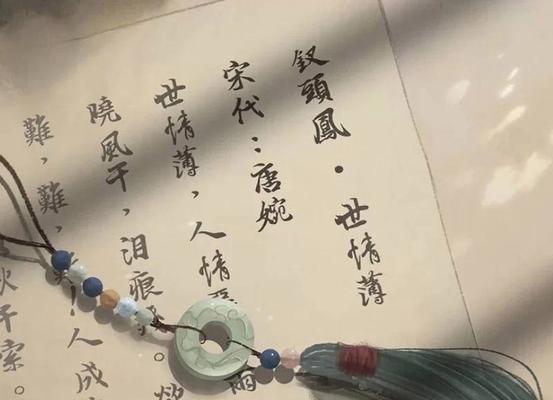 釵頭鳳·世情薄
宋代：唐婉
世情薄，人情雨
曉風干，泪痕。
難，難，！人成
千索。